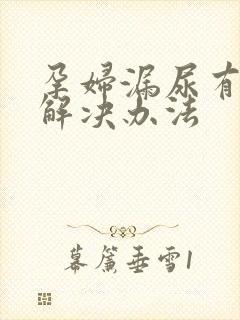 孕婦漏尿有
解决办法
幕簾垂雪1